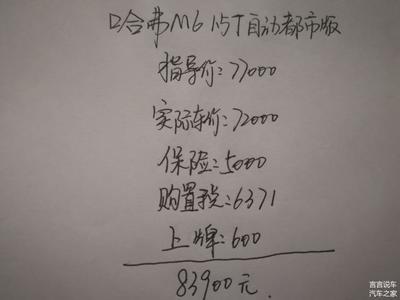 哈弗M6 1.5T自动都市版
指导价:77000
实际车价:72000
保险:5000
购置税:6371
上牌:600
83900元.
言言说车
汽车之家